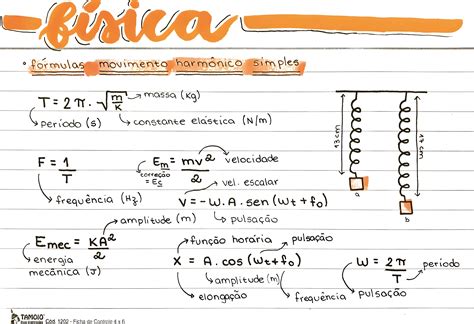 física
• fórmulas movimento harmônico simples
T = 2π · √m/k
massa (kg)
período (s)
constante elástica (N/m)
13 cm
17 cm
a
b
F = 1/T
frequência (Hz)
Em = mv²/2
velocidade
correção = Ec
vel. escalar
V = -W. A. sen (Wt + fo)
pulsação
amplitude (m)
Emec = KA²/2
energia mecânica (J)
função horária
pulsação
X = A. cos (Wt + fo)
amplitude (m)
elongação
frequência
W = 2π/T
período
pulsação
TAMOIO
Cód. 1202 - Ficha de Controle 4 x 6